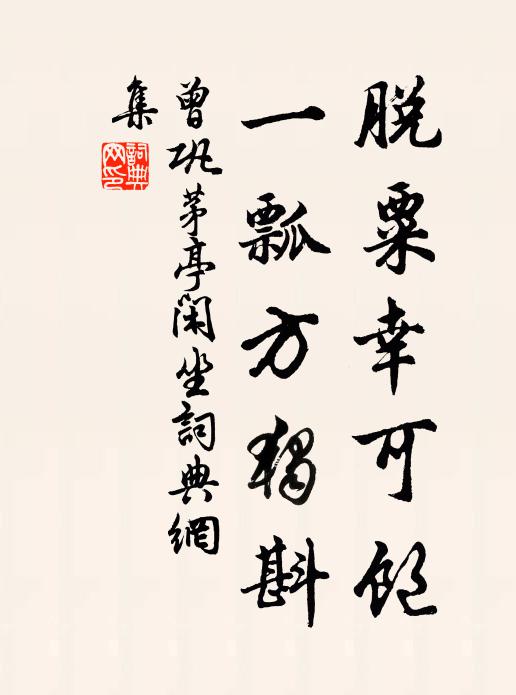 脱粟幸可飽
一瓢方獨斟
曾巩茅亭閑坐詞典網
集
詞典網印